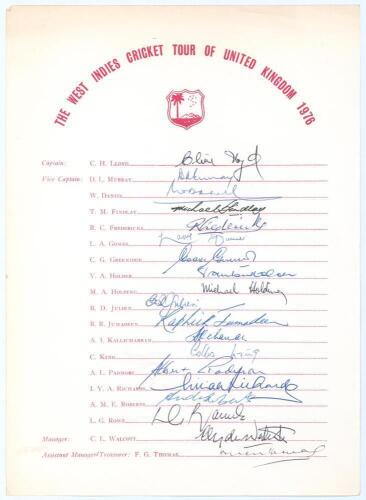 THE WEST INDIES CRICKET TOUR OF UNITED KINGDOM 1976
Captain: C. H. LLOYD Clive Lloyd
Vice Captain: D. L. MURRAY DLMurray
W. DANIEL W Daniel
T. M. FINDLAY Michael Findlay
R. C. FREDERICKS R Fredericks
L. A. GOMES Larry Gomes
C. G. GREENIDGE
V. A. HOLDER Vanburn Holder
M. A. HOLDING Michael Holding
B. D. JULIEN
R. R. JUMADEEN Raphick Jumadeen
A. I. KALLICHARRAN
C. KING Collis King
A. L. PADMORE Albert Padmore
I. V. A. RICHARDS Vivian Richards
A. M. E. ROBERTS Andy Roberts
L. G. ROWE
Manager: C. L. WALCOTT Clyde Walcott
Assistant Manager/Treasurer: F. G. THOMAS